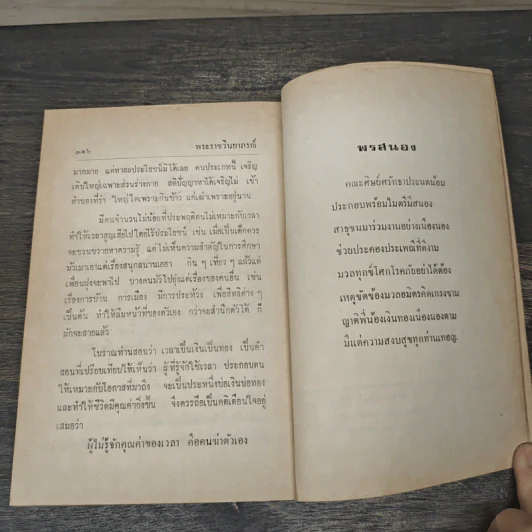 ๓๑๖ พระราชวินยาภรณ์
มากมาย แต่หาสลประโยชน์มิได้เลย คนประเภทนี้ เจริญ
เติบใหญ่เฉพาะส่วนร่างกาย สติปัญญาหาได้เจริญไม่ เข้า
ทำนองที่ว่า ใหญ่โตเพราะกินข้าว แก่เฒ่าเพราะอยู่นาน
มีคนจำนวนไม่น้อยที่ประพฤติตนไม่เหมาะกับเวลา
ทำให้เวลาสูญเสียไปโดยไร้ประโยชน์ เช่น เมื่อเป็นเด็กควร
จะขวนขวายหาความรู้ แต่ไม่เห็นความสำคัญในการศึกษา
มัวเมาเอาแต่เรื่องสนุกสนานเฮฮา กิน ๆ เที่ยว ๆ แล้วแต่
เพื่อนฝูงจะพาไป บางคนมัวไปยุ่งแต่เรื่องของคนอื่น เช่น
เรื่องการบ้าน การเมือง มีการประท้วง เพื่อสิทธิต่าง ๆ
เป็นต้น ทำให้ลืมหน้าที่ของตัวเอง กว่าจะสำนึกตัวได้ ก็
มักจะสายแล้ว
โบราณท่านสอนว่า เวลาเป็นเงินเป็นทอง เป็นคำ
สอนที่เปรียบเทียบให้เห็นว่า ผู้ที่รู้จักใช้เวลา ประกอบตน
ให้เหมาะกับโอกาสที่มาถึง จะเป็นประหนึ่งบ่อเงินบ่อทอง
และทำให้ชีวิตมีคุณค่ายิ่งขึ้น จึงควรถือเป็นคติเตือนใจอยู่
เสมอว่า
ผู้ไม่รู้จักคุณค่าของเวลา คือคนฆ่าตัวเอง
พรสนอง
คณะศิษย์ศรัทธาประนตน้อม
ประกอบพร้อมไมตรีมีสนอง
สาธุชนมาร่วมงานอย่างเนืองนอง
ช่วยประคองประเพณีที่ดีงาม
มวลทุกข์โศกโรคภัยอย่าได้ต้อง
เหตุขัดข้องมวลอมิตรคิดเกรงขาม
ญาติพี่น้องเงินทองเนืองนองตาม
มีแต่ความสงบสุขทุกท่านเทอญ.